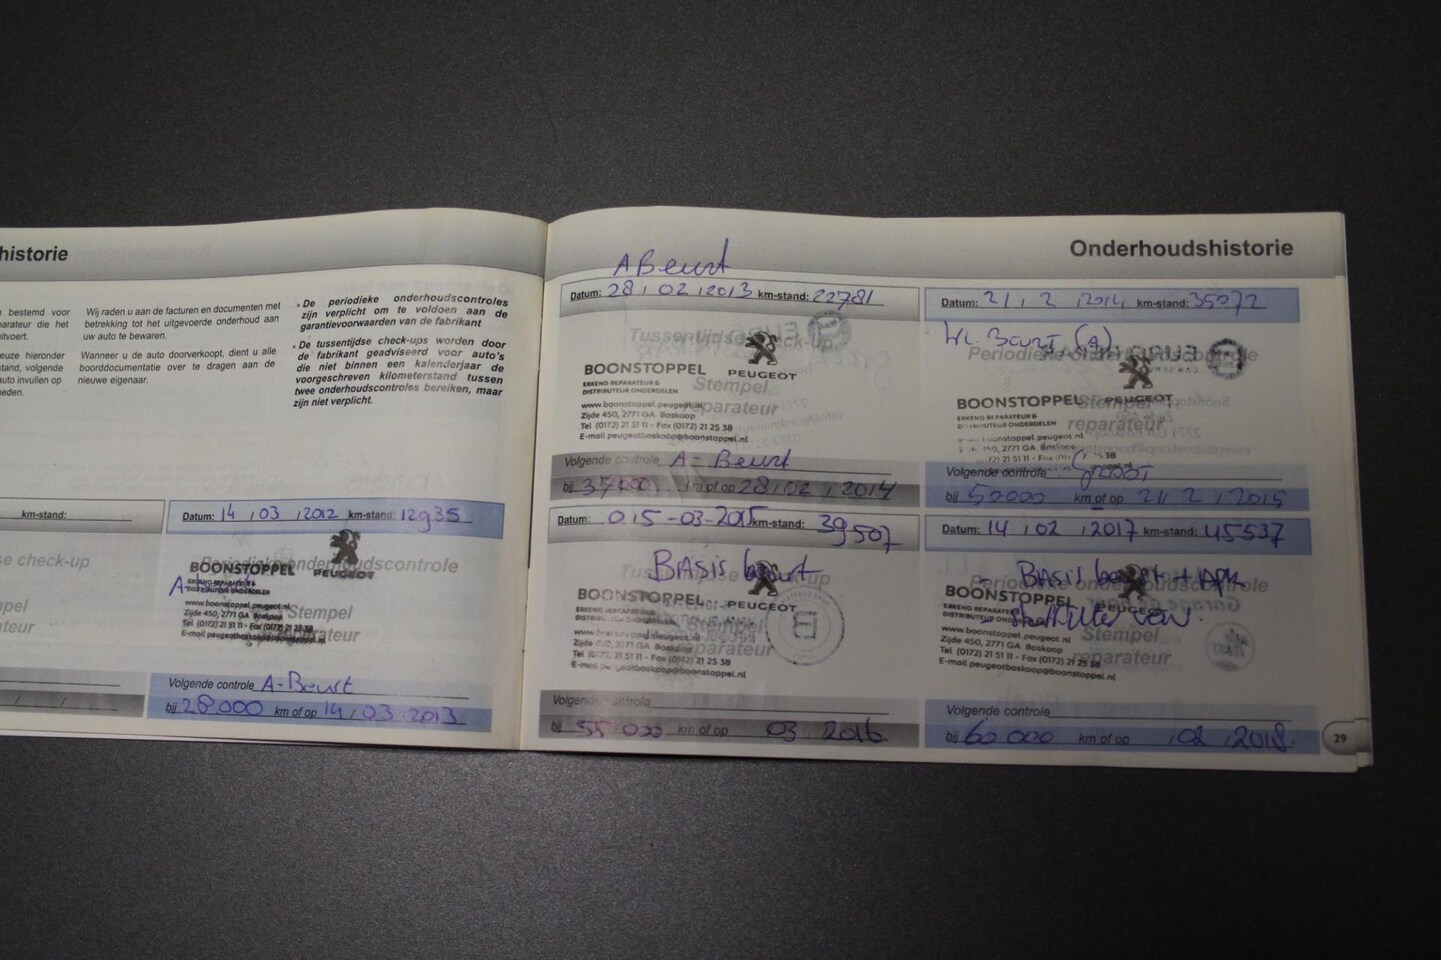 historie
bestemd voor
arateur die het
itvoert.
euze hieronder
stand, volgende
auto invullen op
eden.
Wij raden u aan de facturen en documenten met
betrekking tot het uitgevoerde onderhoud aan
uw auto te bewaren.
Wanneer u de auto doorverkoopt, dient u alle
boorddocumentatie over te dragen aan de
nieuwe eigenaar.
• De periodieke onderhoudscontroles
zijn verplicht om te voldoen aan de
garantievoorwaarden van de fabrikant
• De tussentijdse check-ups worden door
de fabrikant geadviseerd voor auto's
die niet binnen een kalenderjaar de
voorgeschreven kilometerstand tussen
twee onderhoudscontroles bereiken, maar
zijn niet verplicht.
km-stand:
se check-up
mpel
ateur
Datum: 14 / 03 / 2012 km-stand: 12935
Periodieke onderhoudscontrole
BOONSTOPPEL PEUGEOT
ERKEND REPARATEUR &
DISTRIBUTEUR ONDERDELEN
A-beurt
www.boonstoppel.peugeot.nl
Stempel
Zijde 450, 2771 GA Boskoop
Tel (0172) 21 51 11 - Fax (0172) 21 25 38
reparateur
E-mail peugeotboskoop@boonstoppel.nl
Volgende controle A-Beurt
bij 28.000 km of op 14 / 03 - 2013
Onderhoudshistorie
A Beurt
Datum: 28 / 02 / 2013 km-stand: 22781
Tussentijdse check-up
BOONSTOPPEL PEUGEOT
ERKEND REPARATEUR &
DISTRIBUTEUR ONDERDELEN
Stempel
www.boonstoppel.peugeot.nl
reparateur
Zijde 450, 2771 GA Boskoop
Tel (0172) 21 51 11 - Fax (0172) 21 25 38
E-mail peugeotboskoop@boonstoppel.nl
Volgende controle A - Beurt
bij 37.000 km of op 28 / 02 / 2014
Datum: 21 / 2 / 2014 km-stand: 35072
Kl. Beurt (A)
Periodieke onderhoudscontrole
BOONSTOPPEL PEUGEOT
Stempel
ERKEND REPARATEUR &
DISTRIBUTEUR ONDERDELEN
reparateur
boonstoppel.peugeot.nl
Volgende controle Groot
bij 50000 km of op 21 / 2 / 2015
Datum: 0.15 - 03 - 2015 km-stand: 39507
BASis beurt
Tussentijdse check-up
BOONSTOPPEL PEUGEOT
Stempel
reparateur
Zijde 450, 2771 GA Boskoop
Tel (0172) 21 51 11 - Fax (0172) 21 25 38
E-mail peugeotboskoop@boonstoppel.nl
Volgende controle
bij 55.000 km of op 03 2016
Datum: 14 / 02 / 2017 km-stand: 45537
- BAsis beurt + APK
Periodieke onderhoudscontrole
BOONSTOPPEL PEUGEOT
ERKEND REPARATEUR &
DISTRIBUTEUR ONDERDELEN
www.boonstoppel.peugeot.nl
Stempel
Zijde 450, 2771 GA Boskoop
Tel (0172) 21 51 11 - Fax (0172) 21 25 38
reparateur
E-mail peugeotboskoop@boonstoppel.nl
Volgende controle
bij 60.000 km of op / 02 / 2018
29